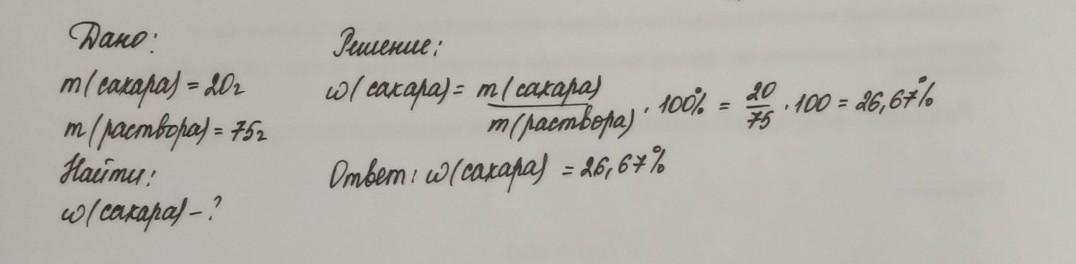 Дано:
m(сахара) = 20г
m(раствора) = 75г
Найти:
ω(сахара) - ?
Решение:
ω(сахара) = m(сахара) / m(раствора) · 100% = 20 / 75 · 100 = 26,67%
Ответ: ω(сахара) = 26,67%